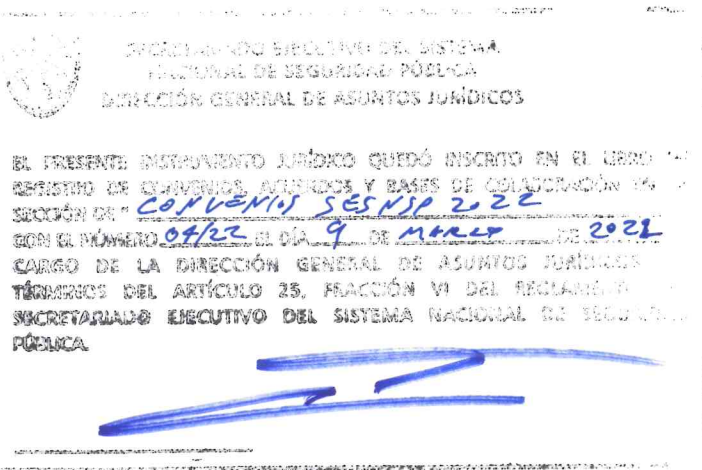 SECRETARIADO EJECUTIVO DEL SISTEMA
NACIONAL DE SEGURIDAD PÚBLICA
DIRECCIÓN GENERAL DE ASUNTOS JURÍDICOS
EL PRESENTE INSTRUMENTO JURÍDICO QUEDÓ INSCRITO EN EL LIBRO
REGISTRO DE CONVENIOS, ACUERDOS Y BASES DE COLABORACIÓN
SECCIÓN DE " CONVENIOS SESNSP 2022
CON EL NÚMERO 04/22 EL DÍA 9 DE MARZO DE 2022
CARGO DE LA DIRECCIÓN GENERAL DE ASUNTOS JURÍDICOS
TÉRMINOS DEL ARTÍCULO 25, FRACCIÓN VI DEL REGLAMENTO
SECRETARIADO EJECUTIVO DEL SISTEMA NACIONAL DE
PÚBLICA.